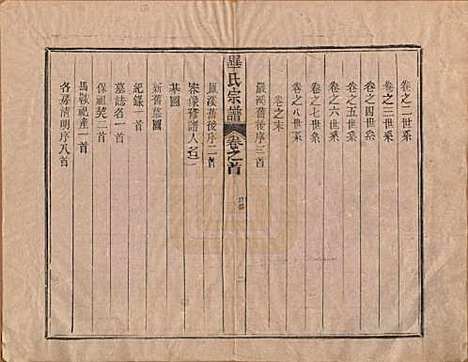 卷之二世系
卷之三世系
卷之四世系
卷之五世系
卷之六世系
卷之七世系
卷之八世系
卷之末
嚴溪舊後序三首
畢氏宗譜
卷之首
目錄
鳳溪舊後序二首
崇像修譜人名
墓圖
新舊墓圖
紀錄一首
墓誌名一首
保祖契二首
馬鞍祀產一首
各房清明序八首